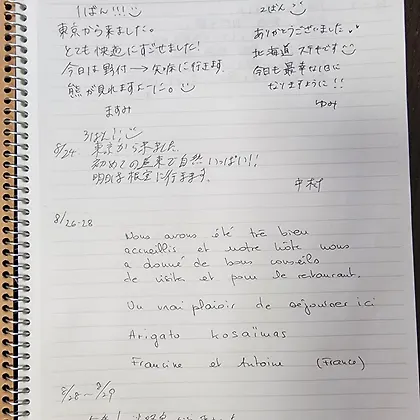 1ばん!!!
東京から来ました。
とても快適にすごせました!
今日は野付→知床に行きます。
熊が見れますように。
ますみ
2ばん
ありがとうございました
北海道ステキです
今日も最幸な1日に
なりますように!!
ゆみ
3ばん!!
8/24 東京から来ました
初めての道東で自然いっぱい!!
明日は根室に行きます。
中村
8/26-28
Nous avons été très bien
accueillis et notre hôte nous
a donné de bons conseils
de visites et pour le restaurant.
Un vrai plaisir de séjourner ici
Arigato kosaïmas
Francine et Antoine (France)
8/28〜8/29